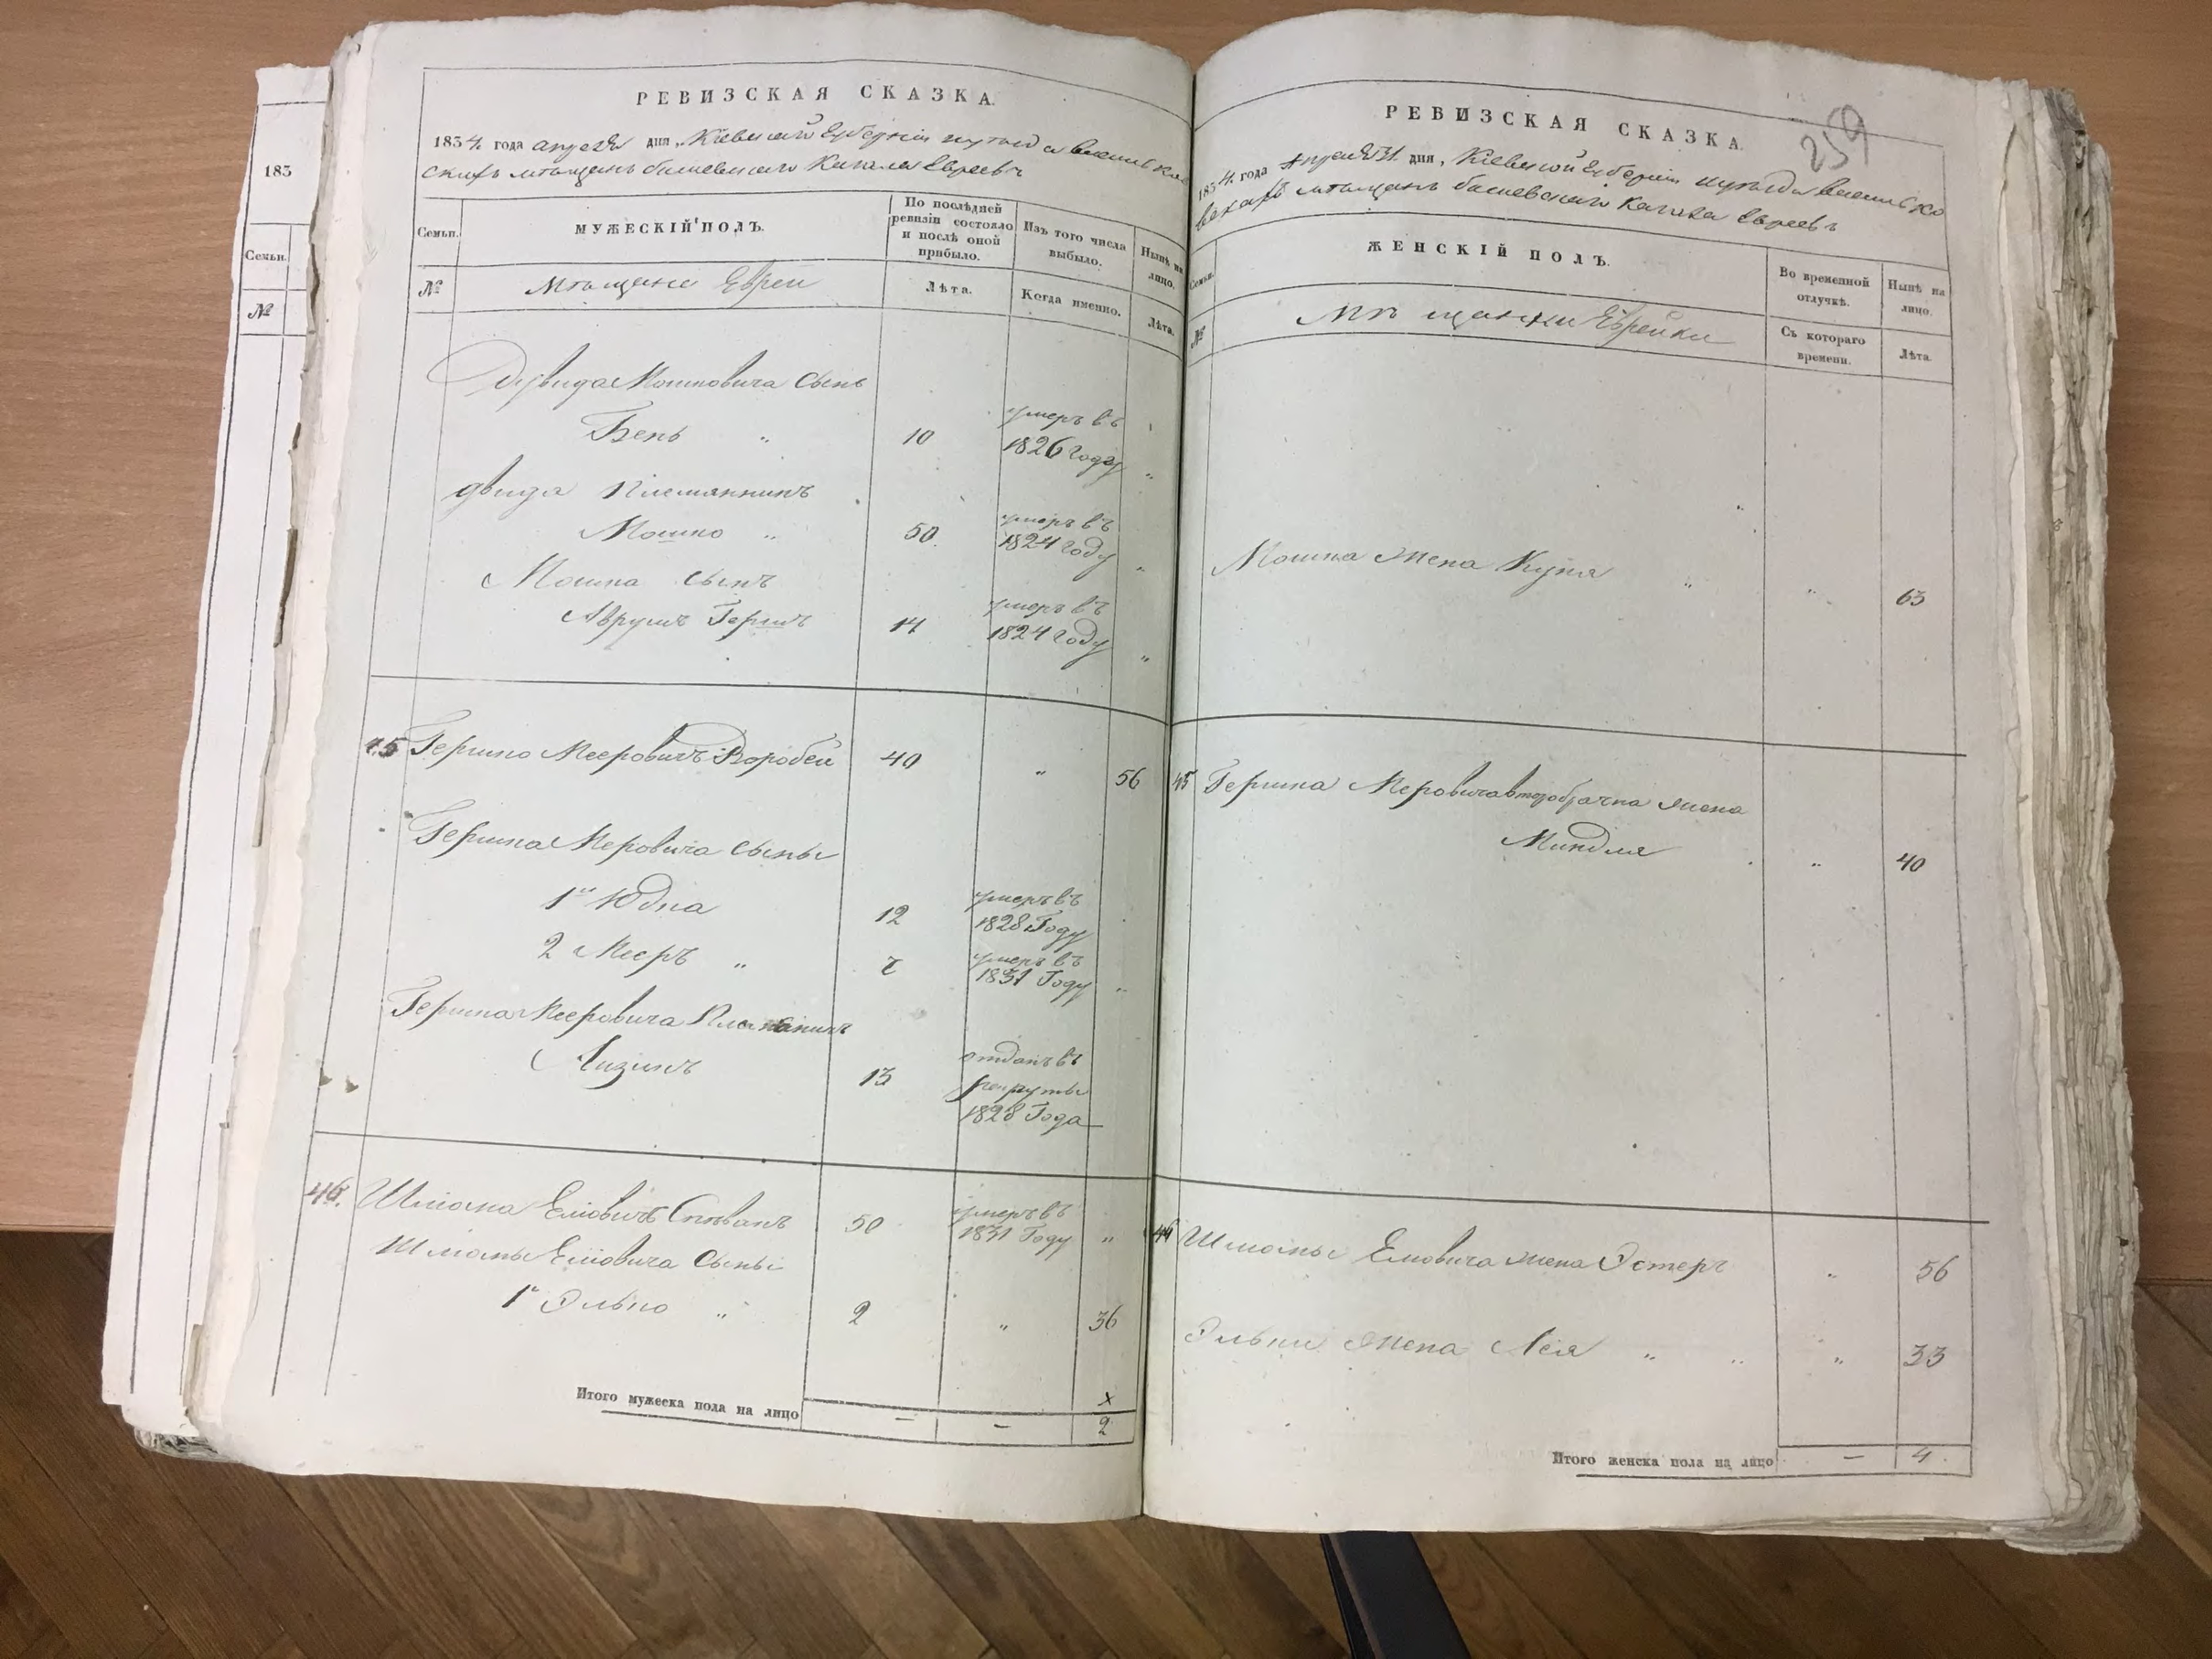 183
Семьи.
№
РЕВИЗСКАЯ СКАЗКА.
1834. года апреля дня, Кіевской Губерніи
скихъ мѣщанъ Кагала Евреевъ
Семьи.
МУЖЕСКІЙ ПОЛЪ.
По послѣдней ревизіи состояло и послѣ оной прибыло.
Изъ того числа выбыло.
Нынѣ на лицо.
№
мѣщане Евреи
Лѣта.
Когда именно.
Лѣта.
Дувида Мошковича сынъ
Бень " 10 умеръ въ 1826 году "
двида племянникъ
Мошко " 50 умеръ въ 1824 году "
Мошка сынъ
Аврумъ Гершъ 14 умеръ въ 1824 году "
45 Гершко Мееровичъ Воробей 40 " 56
Гершка Меровича сыны
1й Юдка 12 умеръ въ 1828 Году
2 Мееръ " 7 умеръ въ 1831 Году "
Гершка Мееровича
Айзикъ 13 отданъ въ рекруты 1828 Года
46. Шліома Спѣвакъ 50 умеръ въ 1831 Году "
сыны
1й Элько " 2 " 36
х
Итого мужеска пола на лицо — — 2
259
РЕВИЗСКАЯ СКАЗКА.
1834. года Апреля дня, Кіевской Губерніи
мѣщанъ Кагала Евреевъ
Семьи.
ЖЕНСКІЙ ПОЛЪ.
Во временной отлучкѣ.
Нынѣ на лицо.
№
Мѣщанки Еврейки
Съ котораго времени.
Лѣта
Мошка жена " " 63
45 Гершка Меровича второбрачна жена
Миндля " 40
46 жена Эстеръ " 56
Эльки жена Лея " " " 33
Итого женска пола на лицо — 4